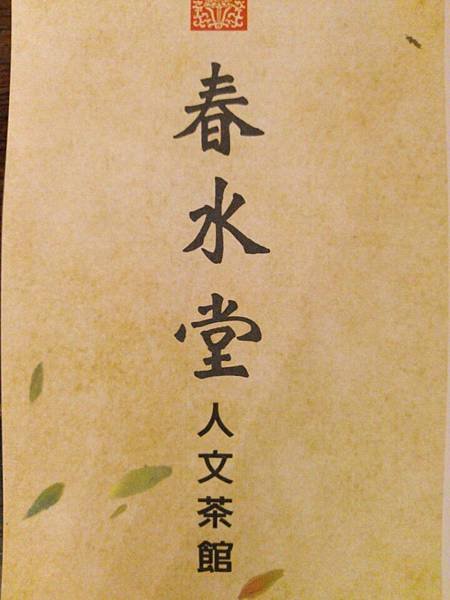 春水堂
人文茶館